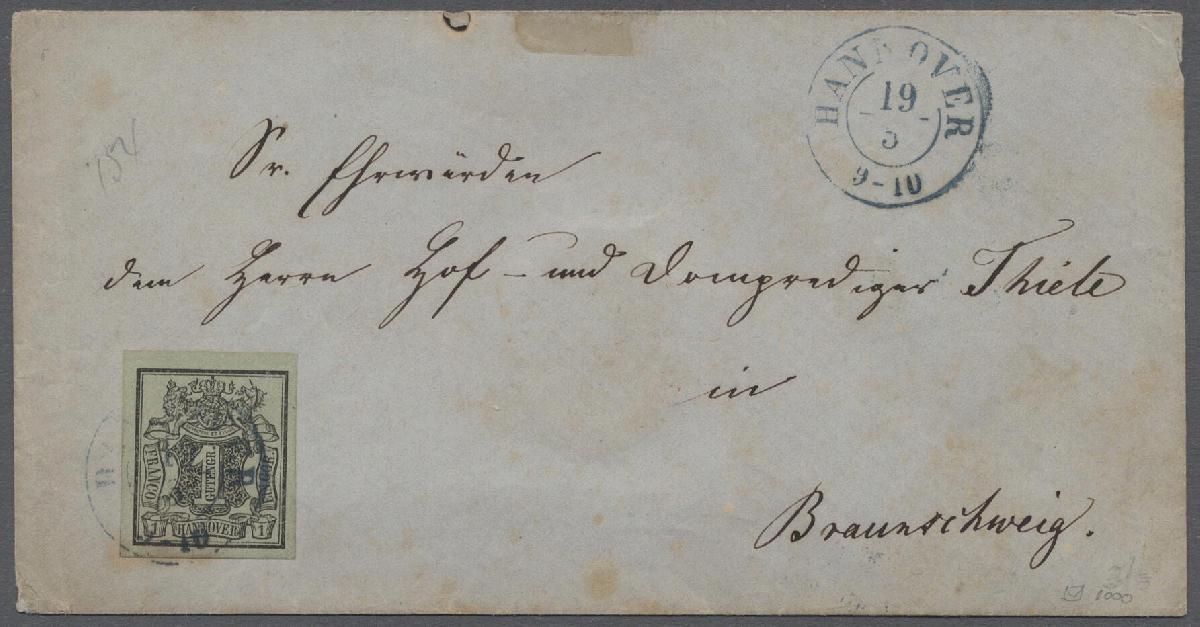 HANNOVER
19
5
9-10
Sr. Ehrwürden
dem Herrn Hof- und Domprediger Thiele
in
Braunschweig.
FRANCO
1
GUTENGR.
1 HANNOVER 1
9-10
1000